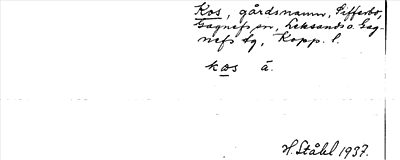 Kos, gårdsnamn, Sifferbo,
Gagnefs sn, Leksands o. Gag-
nefs tg, Kopp. l.
kos á.
H. Ståhl 1937.